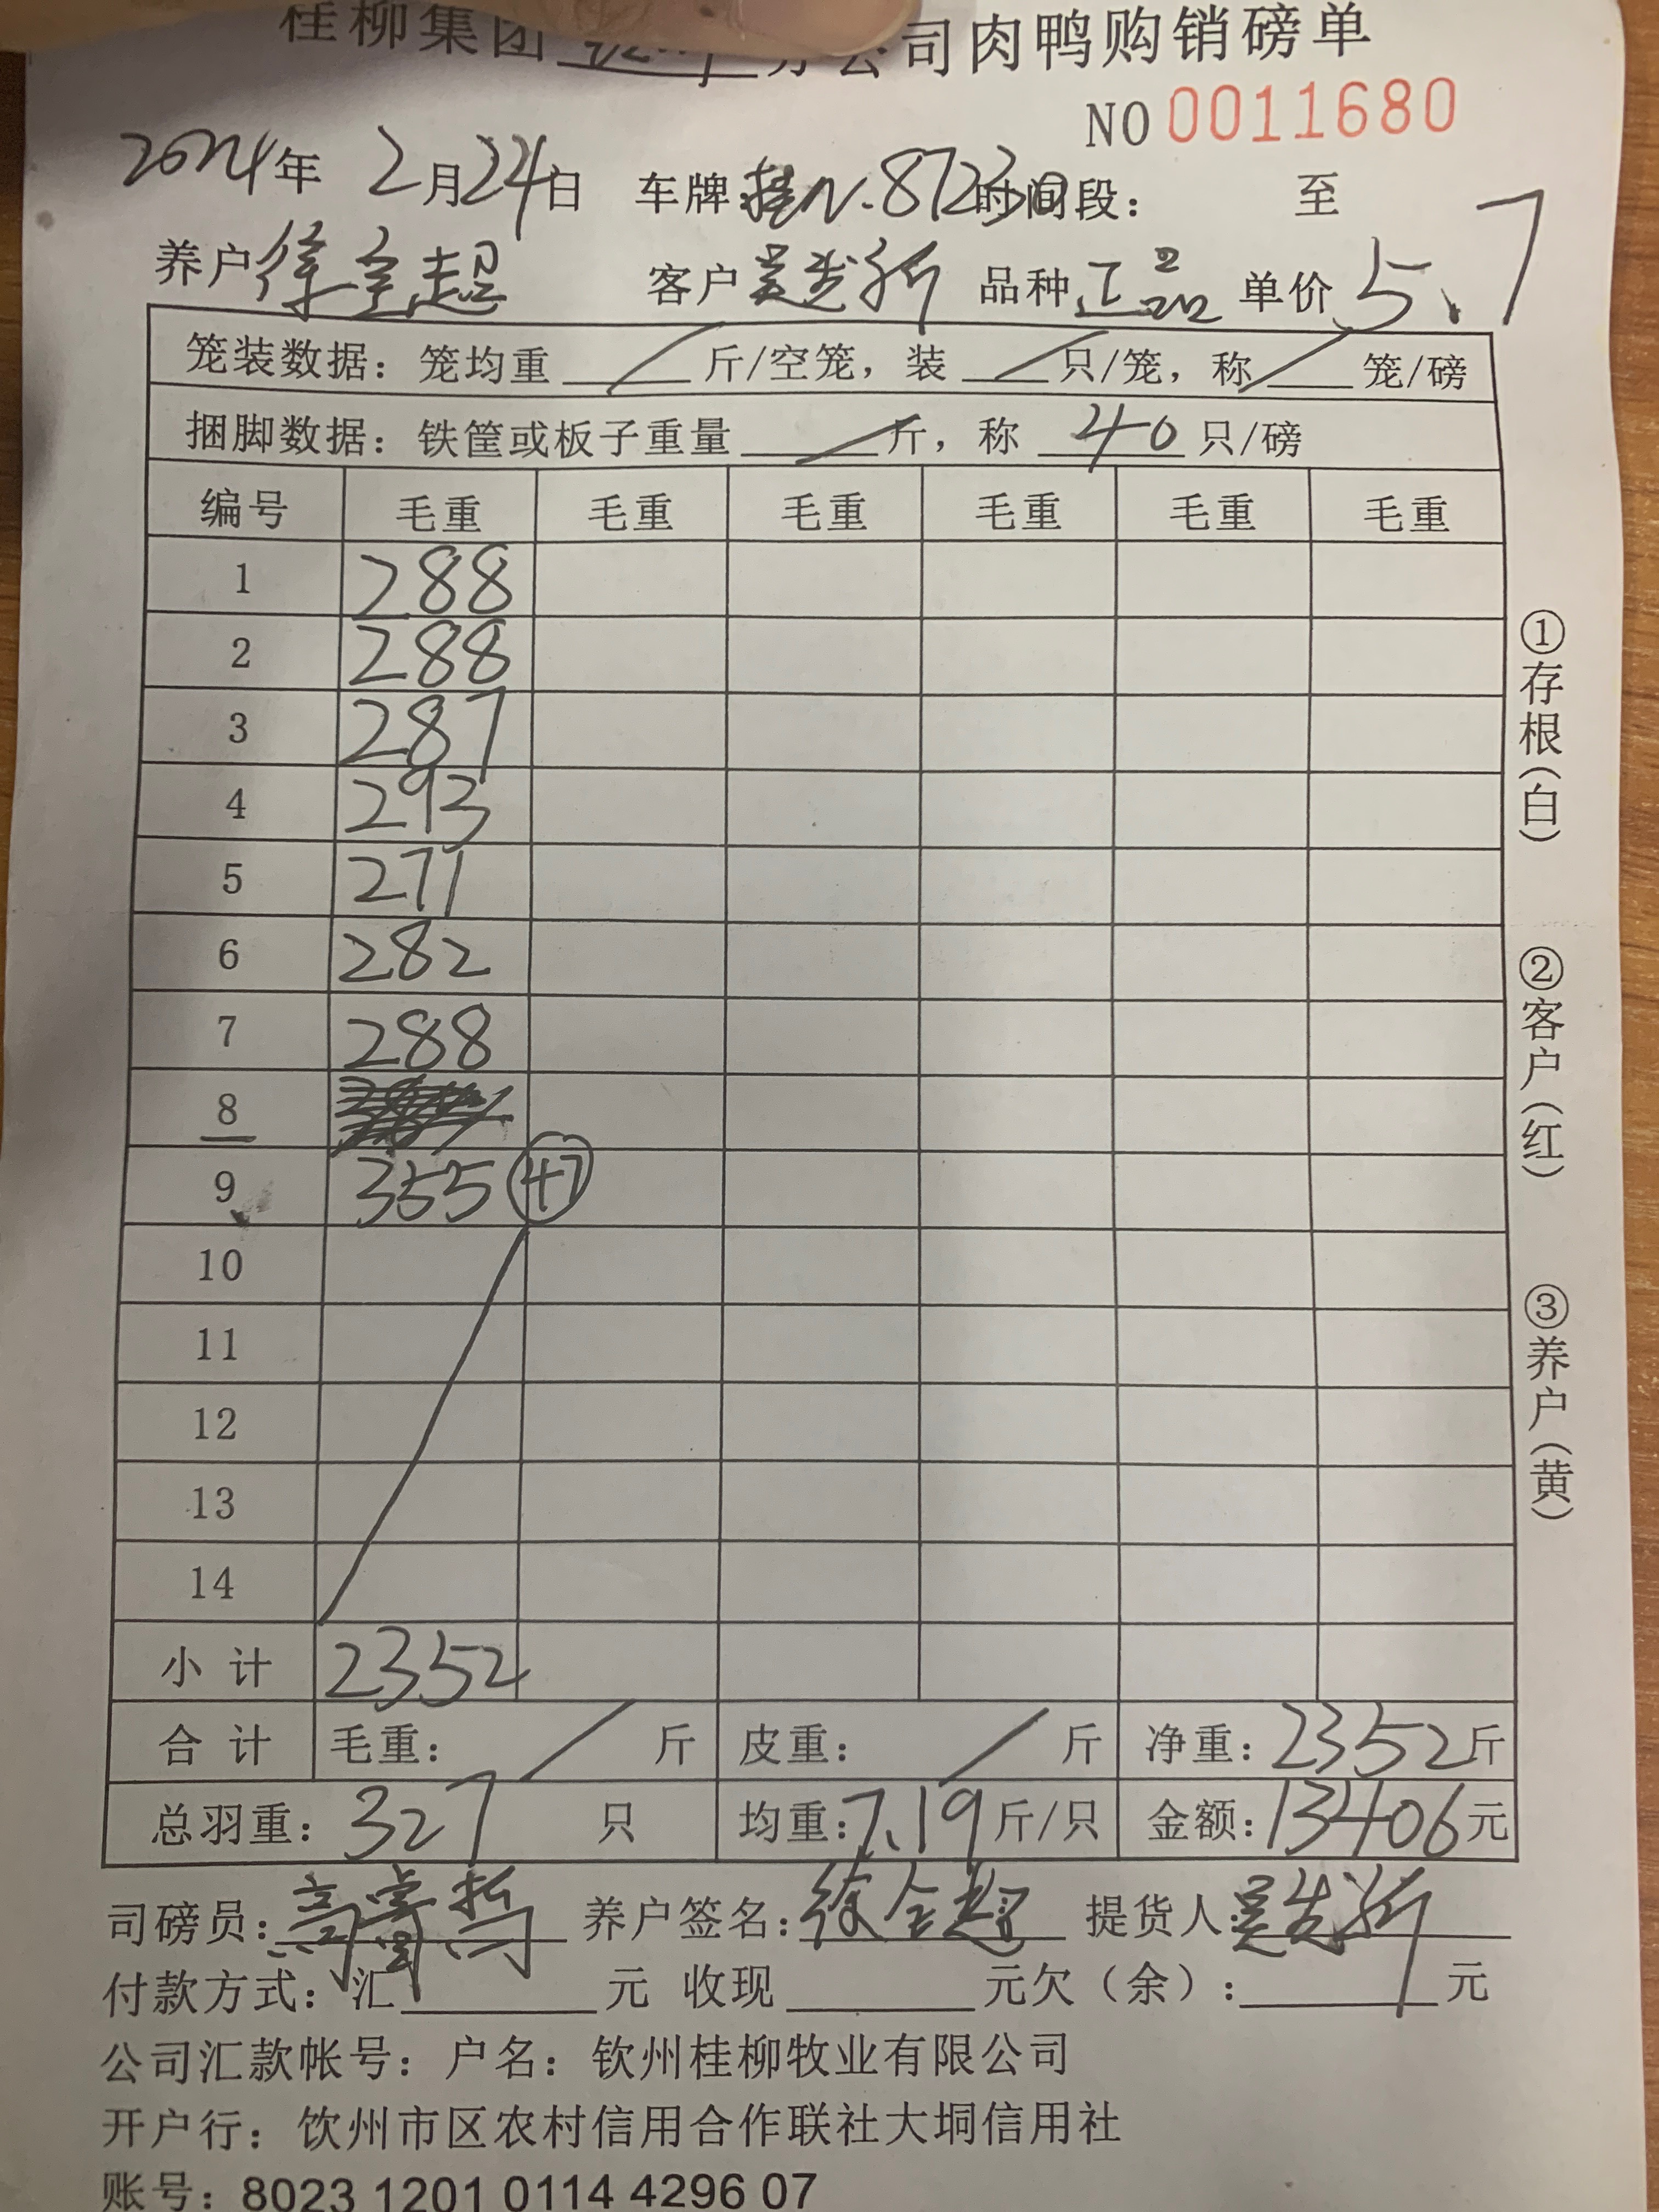 桂柳集团 分公司肉鸭购销磅单
NO 0011680
2024年 2月24日 车牌:桂N.87230 时间段: 至
养户 徐全超 客户 吴 品种 正品 单价 5.7
笼装数据:笼均重 / 斤/空笼,装 / 只/笼,称 / 笼/磅
捆脚数据:铁筐或板子重量 / 斤,称 40 只/磅
编号 毛重 毛重 毛重 毛重 毛重 毛重
1 288
2 288
3 287
4 293
5 271
6 282
7 288
8
9 355 47
10
11
12
13
14
小计 2352
合计 毛重: / 斤 皮重: / 斤 净重:2352斤
总羽重:327 只 均重:7.19斤/只 金额:13406元
司磅员: 养户签名:徐全超 提货人:吴
付款方式:汇 元 收现 元欠(余): 元
公司汇款帐号:户名:钦州桂柳牧业有限公司
开户行:饮州市区农村信用合作联社大垌信用社
账号:8023 1201 0114 4296 07
①存根(白)
②客户(红)
③养户(黄)